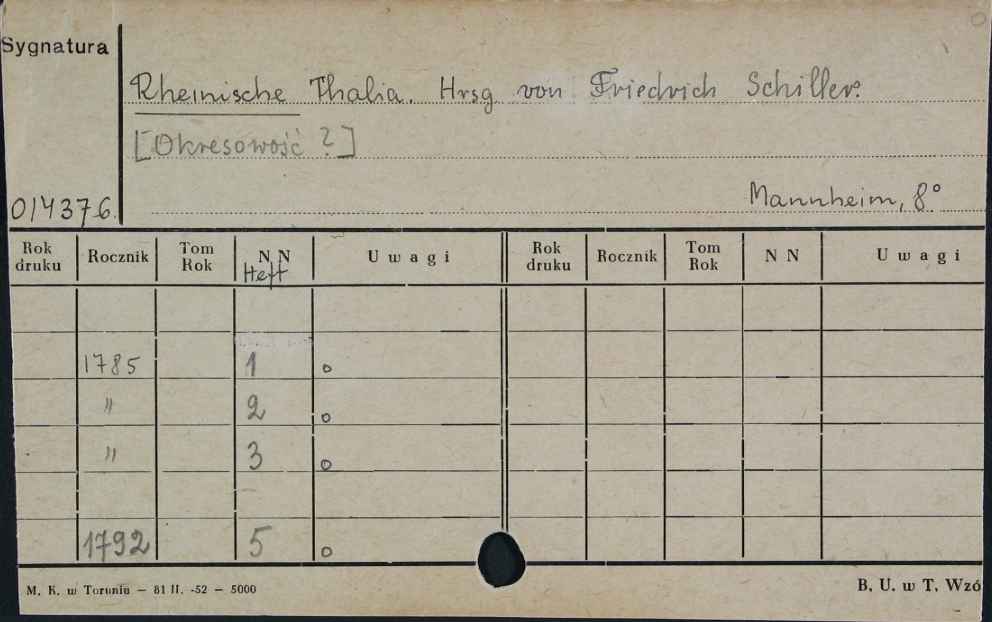 Sygnatura
Rheinische Thalia. Hrsg von Friedrich Schiller.
[Okresowość ?]
Mannheim, 8°
014376.
Rok druku Rocznik Tom Rok N N Heft U w a g i Rok druku Rocznik Tom Rok N N U w a g i
1785 1 o
" 2 o
" 3 o
1792 5 o
M. K. w Toruniu — 81 II. -52 — 5000
B. U. w T. Wzó